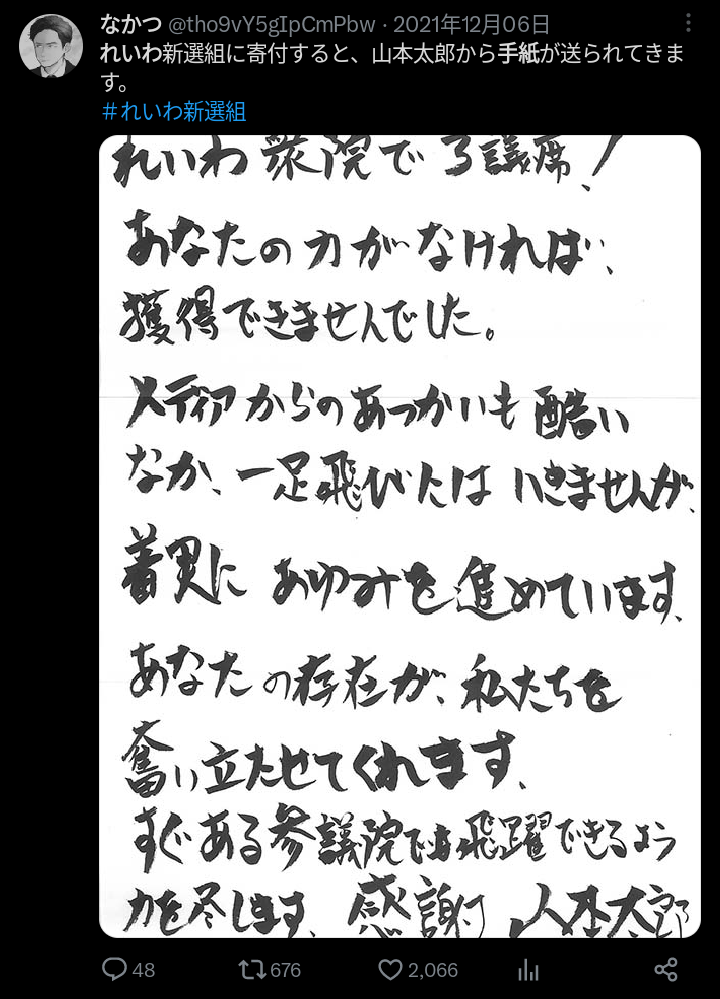 なかつ @tho9vY5gIpCmPbw · 2021年12月06日
れいわ新選組に寄付すると、山本太郎から手紙が送られてきま
す。
#れいわ新選組
れいわ 衆院で 3議席!
あなたの力がなければ、
獲得できませんでした。
メディアからのあつかいも酷い
なか、一足飛びには いきませんが、
着実に あゆみを進めています。
あなたの存在が、私たちを
奮い立たせてくれます。
すぐある参議院では飛躍できるよう
力を尽します。 感謝 山本太郎
48
676
2,066